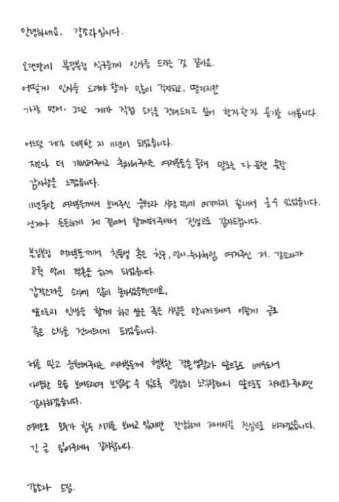 안녕하세요, 강소라입니다.
오랜만에 봉집봉집 식구들께 인사를 드리는 것 같아요.
어떻게 인사를 드려야 할까 많이 걱정되고, 떨리지만
가장 먼저, 그리고 제가 직접 소식을 전해드리고 싶어 한자 한자 용기를 내봅니다.
어느덧 제가 데뷔한 지 11년이 되었습니다.
저보다 더 기뻐해주시고 축하해주시는 여러분들을 통해 말로는 다 표현 못할
감사함을 느꼈습니다.
11년동안 여러분들께서 보내주신 응원과 사랑 덕에 여기까지 힘내서 올 수 있었습니다.
언제나 든든하게 제 곁에서 함께해주셔서 진심으로 감사드립니다.
봉집봉집 여러분들께서 친동생 혹은 친구, 언니·누나처럼 여겨주신 저, 강소라가
8월 말에 결혼을 하게 되었습니다.
갑작스러운 소식에 많이 놀라셨을텐데요,
앞으로의 인생을 함께 하고 싶은 좋은 사람을 만나게 돼서 이렇게 글로
좋은 소식을 전해드리게 되었습니다.
저를 믿고 응원해주시는 여러분들께 행복한 결혼생활과 앞으로도 배우로서
다양한 모습 보여드리며 보답할 수 있도록 열심히 노력할테니 앞으로도 지켜봐주시면
감사하겠습니다.
여러모로 모두가 힘든 시기를 보내고 있지만 건강하게 지내시길 진심으로 바라겠습니다.
긴 글 읽어주셔서 감사합니다.
강소라 드림.